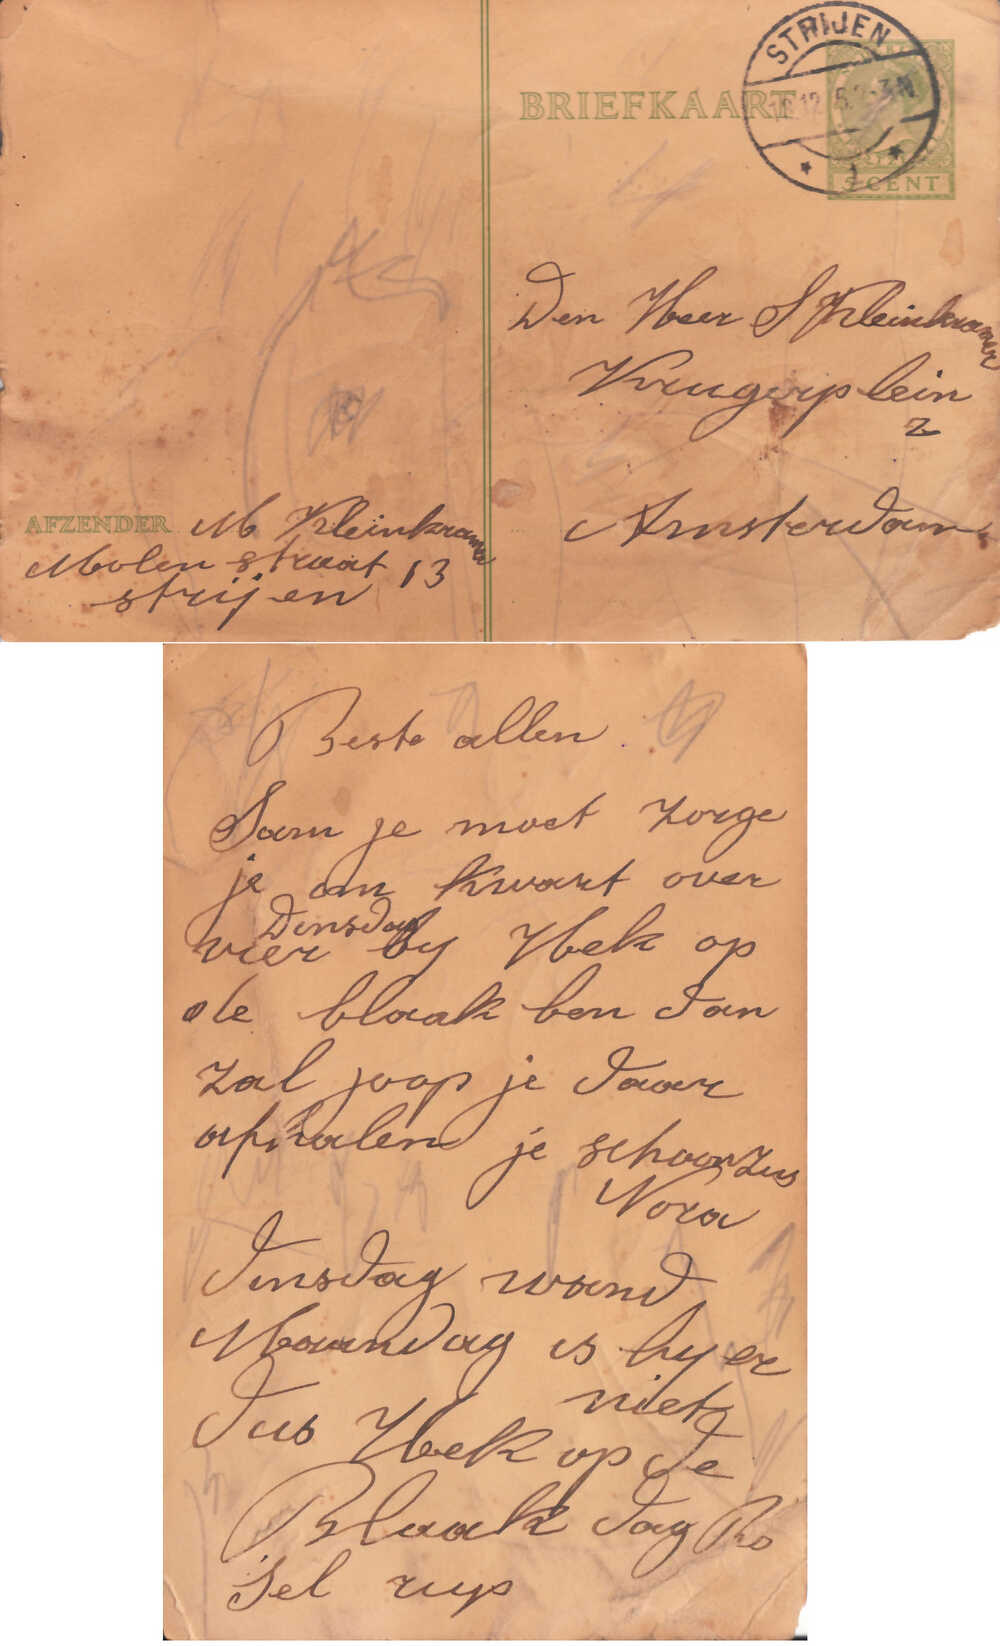 BRIEFKAART
STRIJEN
5 CENT
Den Heer S Kleinkramer
Krugerplein
2
Amsterdam
AFZENDER M Kleinkramer
Molen straat 13
strijen
Beste allen
Sam je moet zorge
je om kwart over
Dinsdag
vier by Hek op
de blaak ben dan
zal joop je daar
afhalen je schoonzus
Nora
dinsdag wand
Maandag is hy er
niet
dus Hek op de
Blaak dag